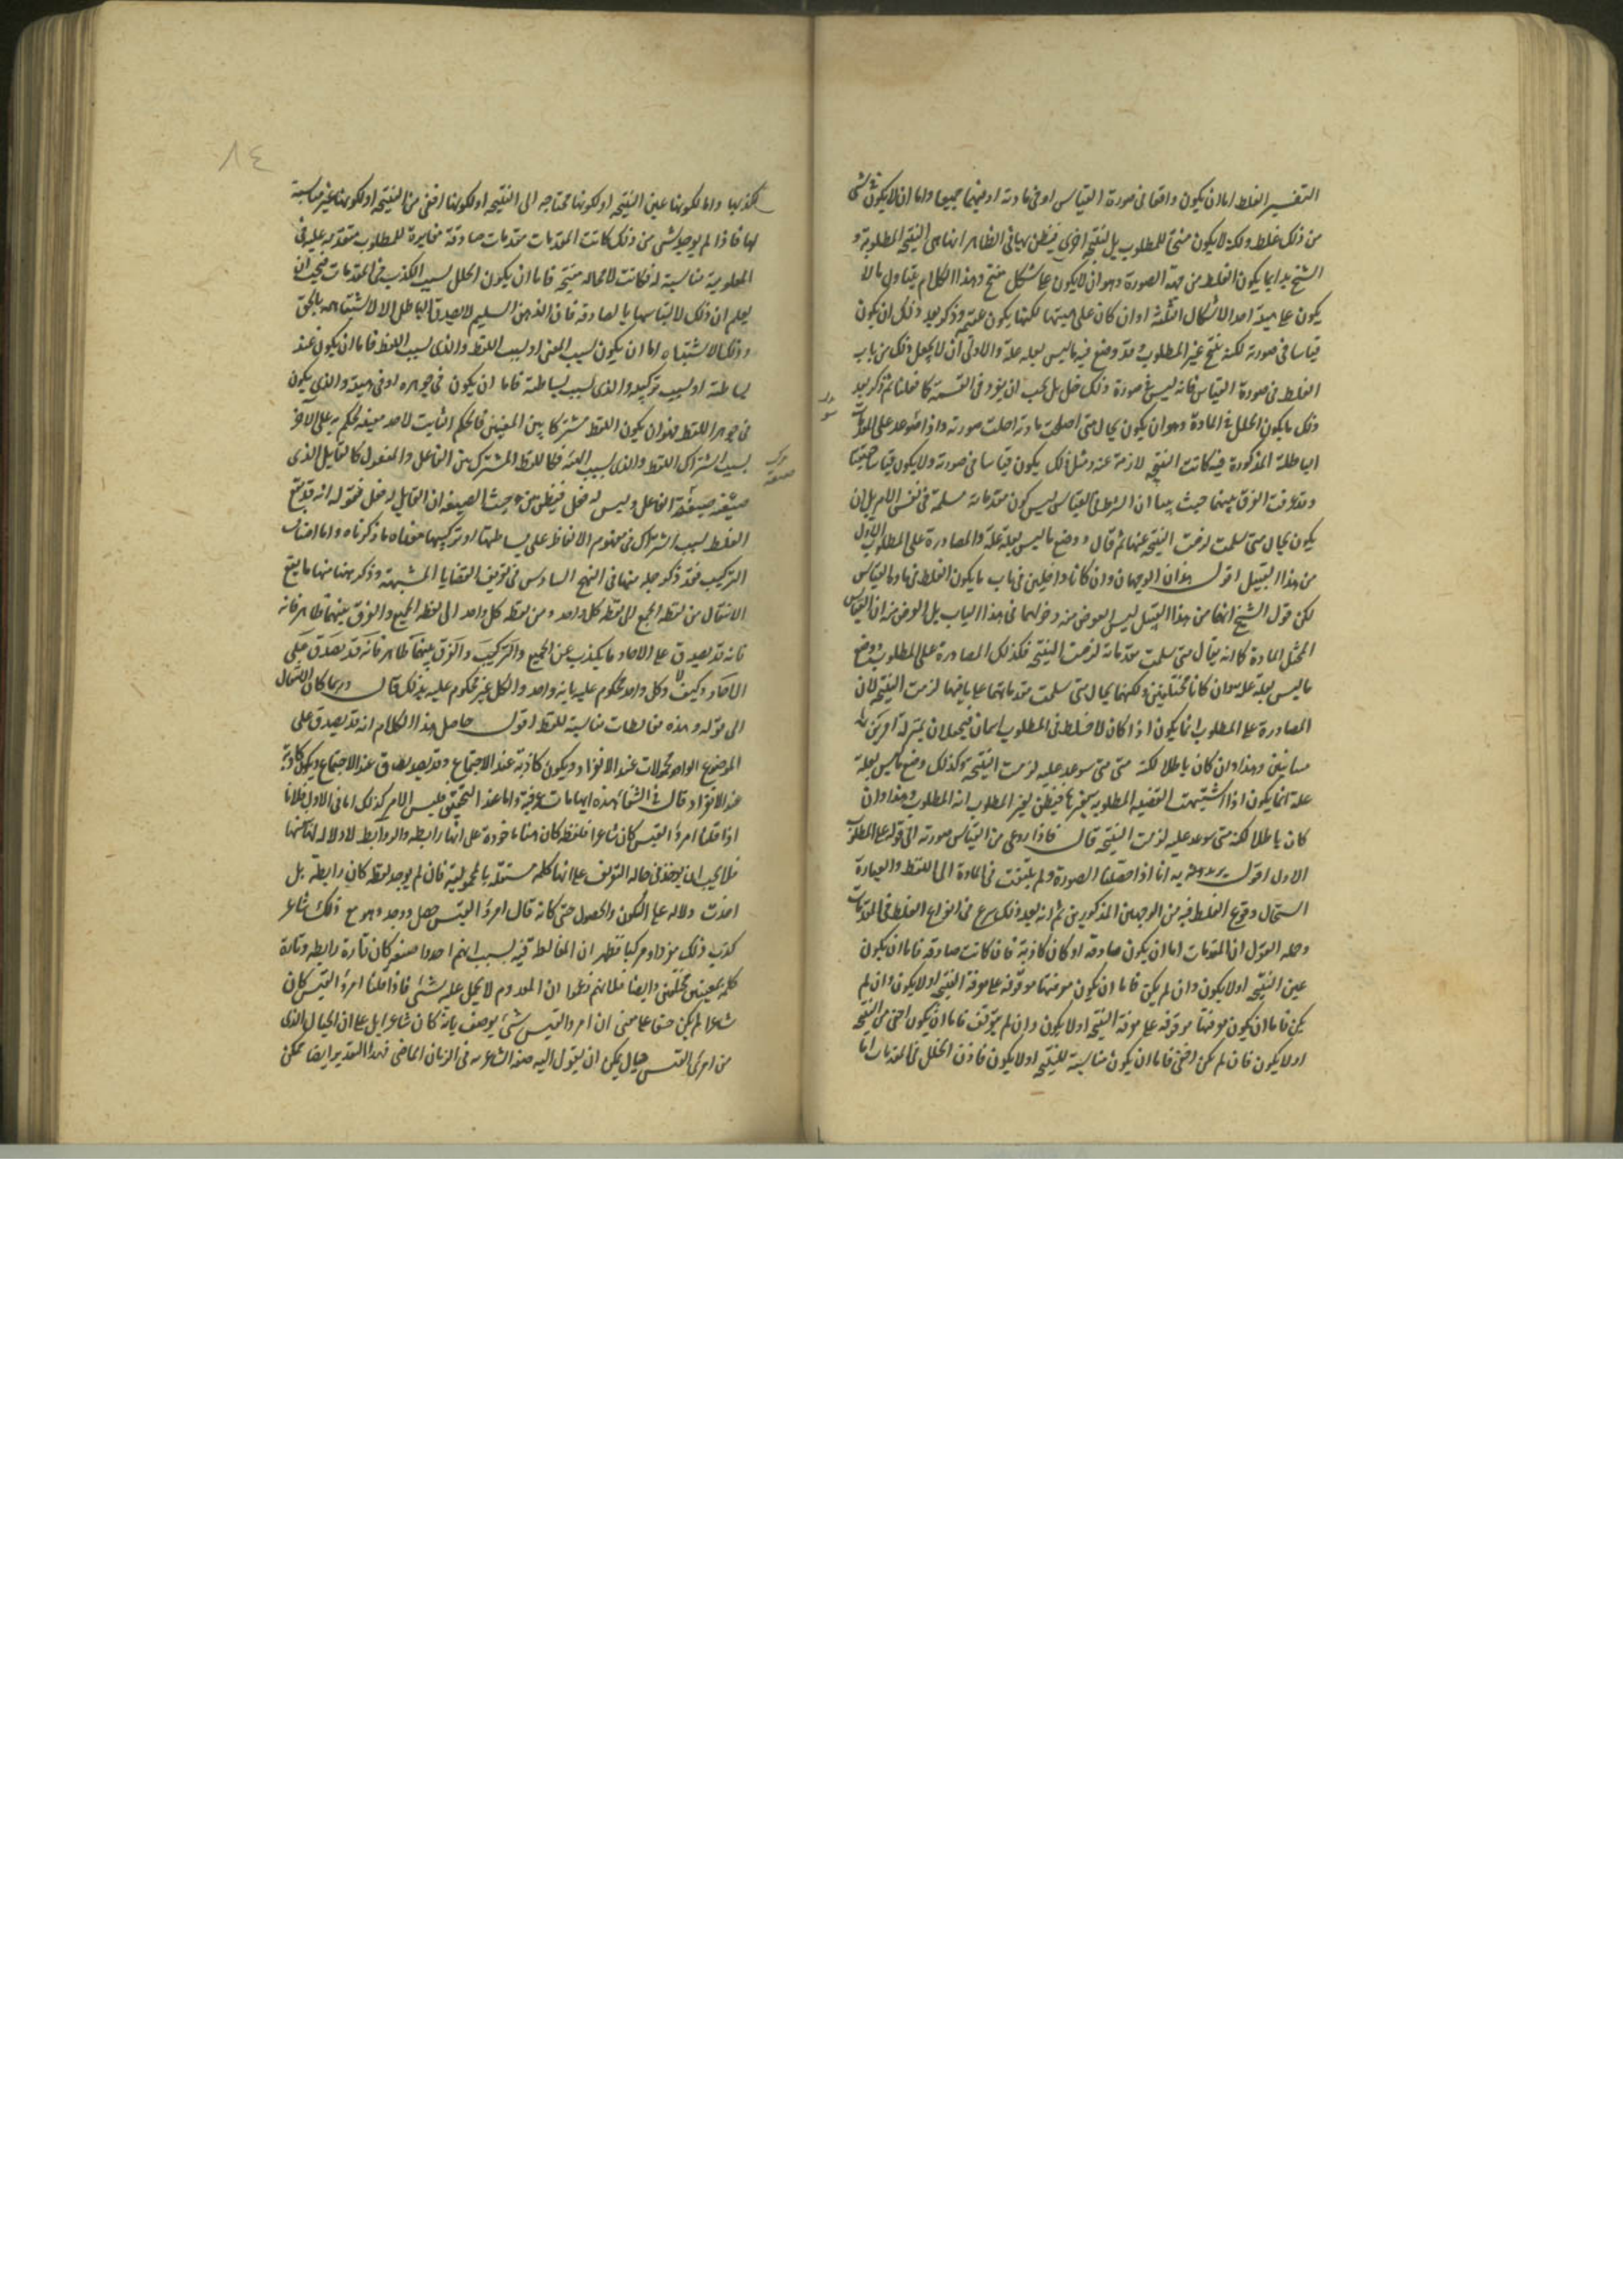 التفسير الغلط اما ان يكون واقعا فى صورة القياس او فى مادته او فيهما جميعا واما ان لا يكون فى شى
من ذلك غلط ولكنه لا يكون منتجا للمطلوب بل لنتيجة اخرى فيظن بها فى الظاهر انها هى النتيجة المطلوبة و
الشيخ بدا بما يكون الغلط من جهة الصورة وهو ان لا يكون على شكل منتج وهذا الكلام يتناول ما لا
يكون على هيئة احد الاشكال الثلثة او ان كان على هيئتها لكنها يكون عقيمة وذكر بعد ذلك ان يكون
قياسا فى صورته لكنه ينتج غير المطلوب وقد وضع فيه ما ليس بعلة علة والاولى ان لا يجعل ذلك من باب
الغلط فى صورة القياس فانه ليس فى صورة ذلك خلل بل يجب ان يفرد فى القسمة كما فعلنا ثم ذكر بعد
ذلك ما يكون الخلل فى المادة وهو ان يكون بحال متى اصلحت مادته اختلت صورته واذا سوعد على المقدمات
الباطلة المذكورة فيه كانت النتيجة لازمة عنه ومثل ذلك يكون قياسا فى صورته ولا يكون قياسا حقيقيا
وقد عرفت الفرق بينهما حيث بينا ان الشرط فى القياس ليس كون مقدماته مسلمة فى نفس الامر بل ان
يكون بحال متى سلمت لزمت النتيجة عنها ثم قال ووضع ما ليس بعلة علة والمصادرة على المطلوب الاول
من هذا القبيل اقول هذان الوجهان وان كانا داخلين فى باب ما يكون الغلط فى مادة القياس
لكن قول الشيخ انهما من هذا القبيل ليس الغرض منه دخولهما فى هذا الباب بل الغرض منه ان القياس
المختل المادة كما انه يقال متى سلمت مقدماته لزمت النتيجة فكذلك المصادرة على المطلوب ووضع
ما ليس بعلة علة وان كانا مختلفين ولكنهما بحال متى سلمت مقدماتهما على ما فيها لزمت النتيجة لان
المصادرة على المطلوب انما يكون اذا كان لاختلط فى المطلوب اسمان فيجعلان بمنزلة امرين
متباينين وهذا وان كان باطلا لكنه متى سوعد عليه لزمت النتيجة وكذلك وضع ما ليس بعلة
علة انما يكون اذا اشتبهت القضية المطلوبة بغيرها فيظن بغير المطلوب انه المطلوب وهذا وان
كان باطلا لكنه متى سوعد عليه لزمت النتيجة قال فاذا روعى من القياس صورته الى قوله على المطلوب
الاول اقول يريد به انا اذا حصلنا الصورة ولم يلتفت فى المادة الى اللفظ والعبارة
استحال وقوع الغلط فيه من الوجهين المذكورين ثم انه بعد ذلك شرع فى انواع الغلط فى المقدمات
وجملة القول ان المقدمات اما ان يكون صادقة او كان كاذبة فان كانت صادقة فاما ان يكون
عين النتيجة او لا يكون وان لم يكن فاما ان يكون معرفتها موقوفة على معرفة النتيجة او لا يكون وان لم
يكن فاما ان يكون معرفتها موقوفة على معرفة النتيجة او لا يكون وان لم يتوقف فاما ان يكون اخفى من النتيجة
او لا يكون فان لم يكن اخفى فاما ان يكون مناسبة للنتيجة او لا يكون فاذن الخلل فى المقدمات اما
٨٤
لكذبها واما لكونها عين النتيجة او لكونها محتاجة الى النتيجة او لكونها اخفى من النتيجة او لكونها غير مناسبة
لها فاذا لم يوجد شى من ذلك كانت المقدمات مقدمات صادقة مغايرة للمطلوب متقدمة عليه فى
المعلومية مناسبة له فكانت لا محالة منتجة فاما ان يكون الخلل بسبب الكذب فى المقدمات فيجب ان
يعلم ان ذلك لالتباسها بالصادقة فان الذهن السليم لا يصدق الباطل الا لاشتباهه بالحق
وذلك الاشتباه اما ان يكون بسبب المعنى او بسبب اللفظ والذى بسبب اللفظ فاما ان يكون عند
بساطته او بسبب تركيبه والذى بسبب بساطته فاما ان يكون فى جوهره او فى هيئته والذى يكون
فى جوهر اللفظ فهو ان يكون اللفظ مشتركا بين المعنيين فالحكم الثابت لاحد معنييه يحكم به على الآخر
بسبب اشتراك اللفظ والذى بسبب الهيئة فكاللفظ المشترك بين الفاعل والمفعول كالقابل الذى
صيغته صيغة الفاعل وليس له فعل فيظن من حيث الصيغة ان القابل له فعل فقوله انه قد يقع
الغلط بسبب اشتراك فى مفهوم الالفاظ على بساطتها او تركيبها معناه ما ذكرناه واما اصناف
التركيب فقد ذكر جملة منها فى النهج السادس فى تعريف القضايا المشبهة وذكر ههنا منها ما يقع
الانتقال من لفظ الجمع الى لفظ كل واحد ومن لفظ كل واحد الى لفظ الجميع والفرق بينهما ظاهر فانه
فانه قد يصدق على الآحاد ما يكذب عن الجميع والتركيب والفرق بينهما ظاهر فانه قد يصدق على
الآحاد وكيف لا وكل واحد محكوم عليه بانه واحد والكل غير محكوم عليه بذلك قال وربما كان الانتقال
الى قوله وهذه مغالطات مناسبة للفظ اقول حاصل هذا الكلام انه قد يصدق على
الموضوع الواحد محمولات عند الانفراد ويكون كاذبة عند الاجتماع وقد يصدق عند الاجتماع ويكون كاذبة
عند الانفراد قال فى الشفا هذه ايهامات عرفية واما عند التحقيق فليس الامر كذلك اما فى الاول فلانا
اذا قلنا امرؤ القيس كان شاعرا فلفظة كان هنا ماخوذة على انها رابطة والروابط لا دلالة لها بانفسها
فلا يجب ان يوخذ فى حالة التفريق على انها كلمة مستقلة بالمحمولية فان لم يوجد لفظة كان رابطة بل
اخذت دلالة على الكون والحصول حتى كانه قال امرؤ القيس حصل ووجد وهو مع ذلك شاعر
كذب ذلك مفردا ومركبا فظهر ان المغالطة فيه بسبب انهم اخذوا لفظ كان تارة رابطة وتارة
كلمة بمعنيين مختلفين وايضا فلانهم زعموا ان المعدوم لا يحمل عليه شئ فاذا قلنا امرؤ القيس كان
شاعرا لم يكن حقا على معنى ان امرؤ القيس شئ يوصف بانه كان شاعرا بل على ان الخيال الذى
من امرئ القيس خيال يمكن ان يقول اليه صفة الشاعرية فى الزمان الماضى فهذا التقدير ايضا ممكن